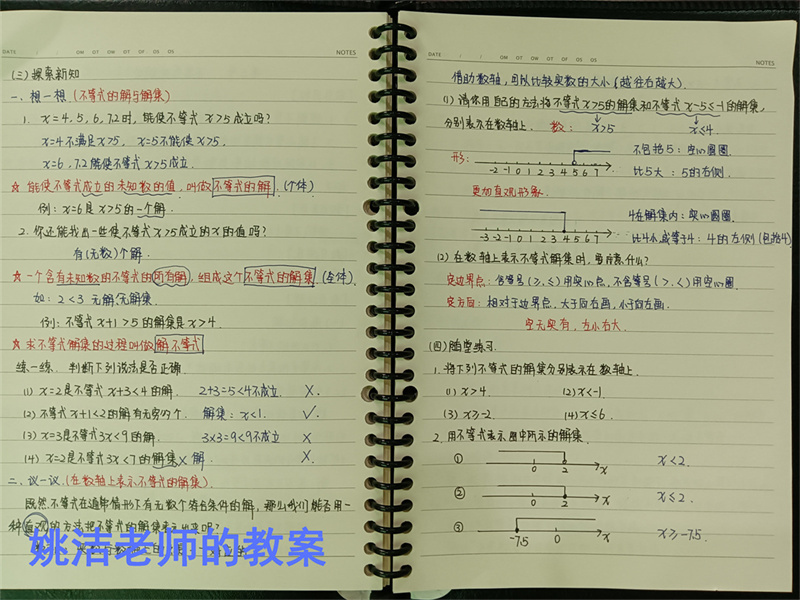 DATE / / OM OT OW OT OF OS OS
NOTES
(三)探索新知
一、想一想.(不等式的解与解集)
1. x=4,5,6,7.2时,能使不等式x>5成立吗?
x=4不满足x>5, x=5不能使x>5,
x=6,7.2能使不等式x>5成立.
☆ 能使不等式成立的未知数的值,叫做不等式的解.(个体)
例:x=6是x>5的一个解.
2.你还能找出一些使不等式x>5成立的x的值吗?
有(无数)个解.
☆ 一个含有未知数的不等式的所有解,组成这个不等式的解集.(全体)
如:2<3 无解无解集.
例:不等式x+1>5的解集是x>4.
☆ 求不等式解集的过程叫做解不等式
练一练. 判断下列说法是否正确.
(1) x=2是不等式x+3<4的解. 2+3=5<4不成立. ×.
(2)不等式x+1<2的解有无穷多个. 解集:x<1. √.
(3) x=3是不等式3x<9的解. 3×3=9<9不成立 ×
(4) x=2是不等式3x<7的解集× 解. ×.
二、议一议.(在数轴上表示不等式的解集).
既然不等式在通常情形下有无数个符合条件的解,那么我们能否用一
种直观的方法把不等式的解集表示出来呢?
姚洁老师的教案
DATE / / OM OT OW OT OF OS OS
NOTES
借助数轴,可以比较实数的大小(越往右越大).
(1) 请你用自己的方法将不等式x>5的解集和不等式x-5≤-1的解集,
分别表示在数轴上. 数: x>5 x≤4.
形: 不包括5:空心圆圈.
-2 -1 0 1 2 3 4 5 6 7 比5大:5的右侧.
更加直观形象.
4在解集内:实心圆圈.
-3 -2 -1 0 1 2 3 4 5 6 7 比4小或等于4:4的左侧(包括4)
(2)在数轴上表示不等式解集时,要注意什么?
定边界点:含等号(≥,≤)用实心点,不含等号(>,<)用空心圈.
定方向:相对于边界点,大于向右画,小于向左画.
空无实有,左小右大.
(四)随堂练习.
1.将下列不等式的解集分别表示在数轴上.
(1) x>4. (2) x<-1.
(3) x≥-2 (4) x≤6.
2.用不等式表示图中所示的解集.
① 0 2 x x<2.
② 0 2 x x≤2.
③ -7.5 0 x x≥-7.5